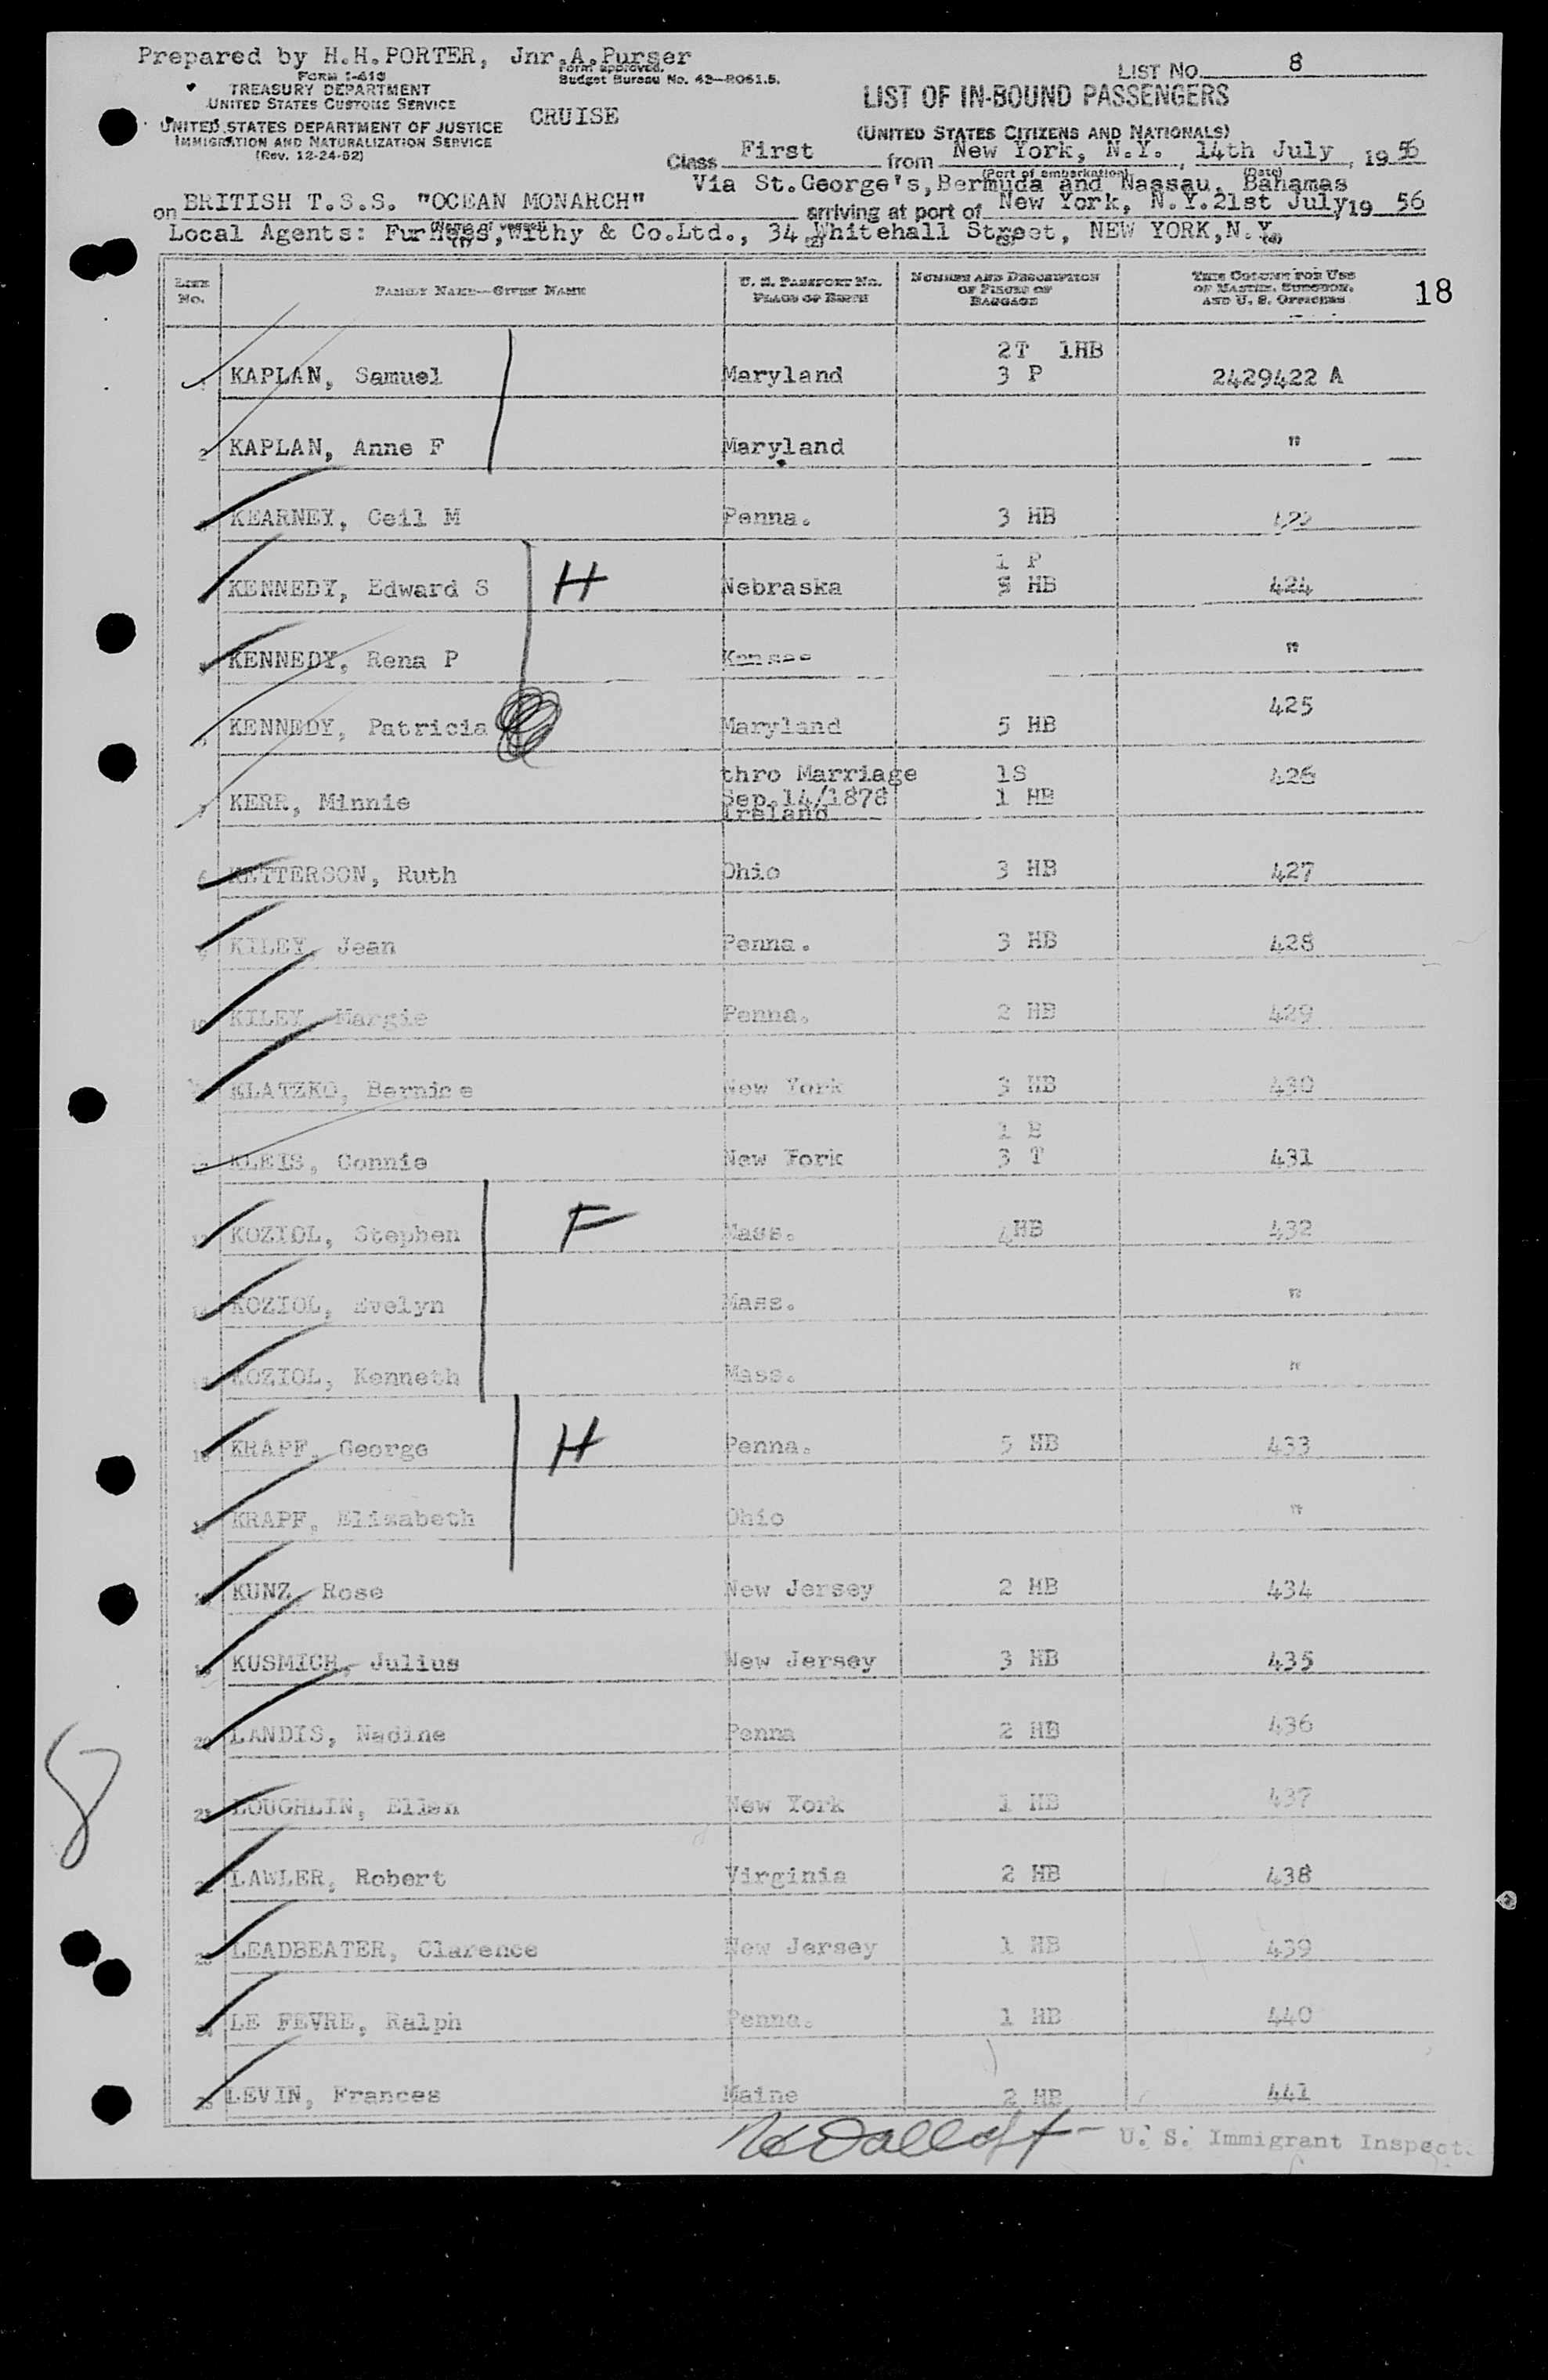 Prepared by H.H.PORTER, Jnr.A.Purser
FORM I-418
TREASURY DEPARTMENT
UNITED STATES CUSTOMS SERVICE
UNITED STATES DEPARTMENT OF JUSTICE
IMMIGRATION AND NATURALIZATION SERVICE
(Rev. 12-24-52)
Form approved.
Budget Bureau No. 43-R061.5.
CRUISE
LIST No. 8
LIST OF IN-BOUND PASSENGERS
(UNITED STATES CITIZENS AND NATIONALS)
Class First from New York, N.Y., 14th July, 1956
(Port of embarkation) (Date)
Via St.George's, Bermuda and Nassau, Bahamas
on BRITISH T.S.S. "OCEAN MONARCH" arriving at port of New York, N.Y. 21st July, 1956
(Name of vessel)
Local Agents: Furness, Withy & Co.Ltd., 34 Whitehall Street, NEW YORK, N.Y.
(1) (2) (3) (4)
LINE No. FAMILY NAME—GIVEN NAME U. S. PASSPORT NO. PLACE OF BIRTH NUMBER AND DESCRIPTION OF PIECES OF BAGGAGE THIS COLUMN FOR USE OF MASTER, SURGEON, AND U. S. OFFICERS 18
2T 1HB
1 KAPLAN, Samuel Maryland 3 P 2429422 A
2 KAPLAN, Anne F Maryland "
3 KEARNEY, Ceil M Penna. 3 HB 423
1 P
KENNEDY, Edward S H Nebraska HB 424
KENNEDY, Rena P Kansas "
KENNEDY, Patricia Maryland 5 HB 425
thro Marriage 1S 426
7 KERR, Minnie Sep.14/1878 1 HB
Ireland
KETTERSON, Ruth Ohio 3 HB 427
9 KILEY, Jean Penna. 3 HB 428
10 KILEY, Margie Penna. 2 HB 429
KLATZKO, Bernice New York 3 HB 430
1 B
12 KLEIS, Connie New York 3 T 431
13 KOZIOL, Stephen F Mass. 4HB 432
14 KOZIOL, Evelyn Mass. "
KOZIOL, Kenneth Mass. "
16 KRAPF, George H Penna. 5 HB 433
17 KRAPF, Elizabeth Ohio "
18 KUNZ, Rose New Jersey 2 HB 434
19 KUSMICH, Julius New Jersey 3 HB 435
20 LANDIS, Nadine Penna 2 HB 436
21 LOUGHLIN, Ellen New York 1 HB 437
22 LAWLER, Robert Virginia 2 HB 438
23 LEADBEATER, Clarence New Jersey 1 HB 439
24 LE FEVRE, Ralph Penna. 1 HB 440
25 LEVIN, Frances Maine 2 HB 441
8
U. S. Immigrant Inspect.